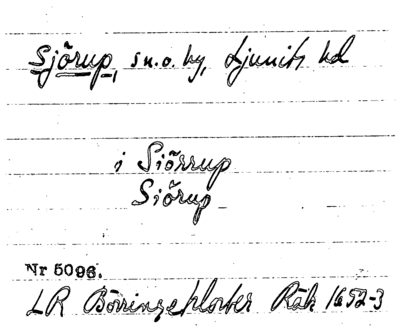 Sjörup, sn.o. by, Ljunits hd
i Siörrup
Siörup
Nr 5096.
LR Börringekloster Räk 1652-3